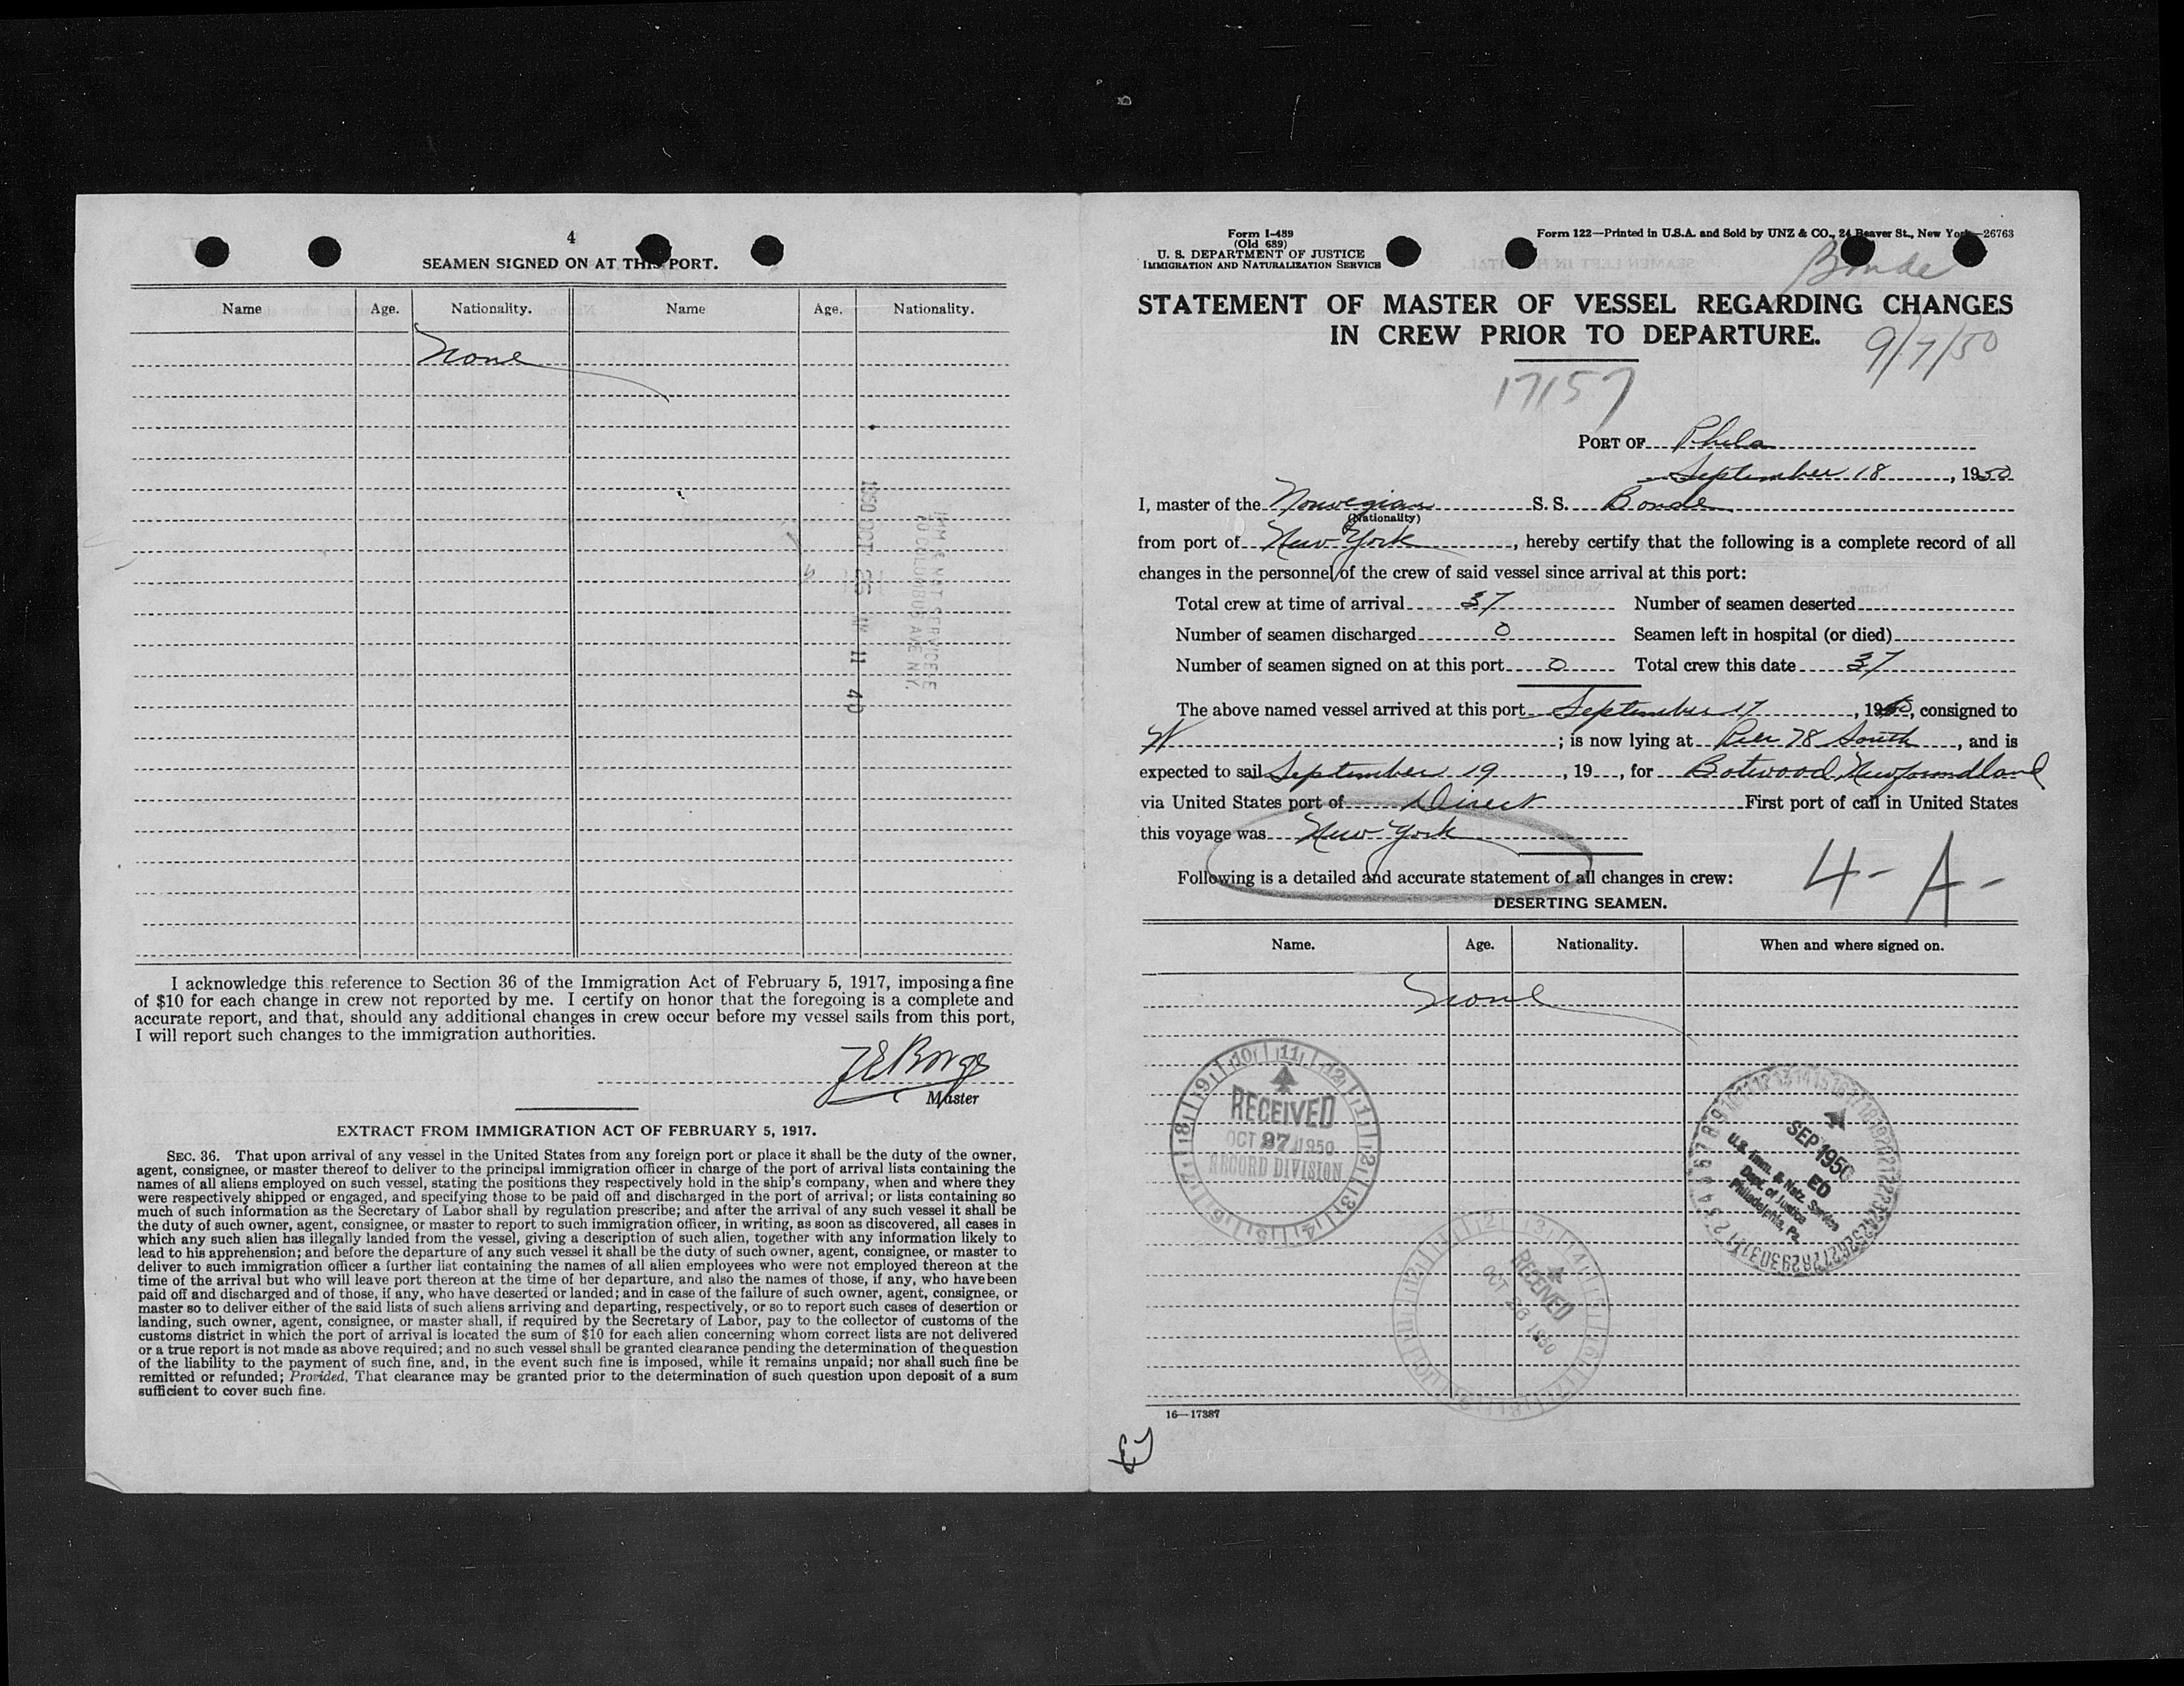 4
SEAMEN SIGNED ON AT THIS PORT.
Name Age. Nationality. Name Age. Nationality.
None
1950 OCT 26 11 40
IMM & NAT SERVICE
70 COLUMBUS AVE NY.
I acknowledge this reference to Section 36 of the Immigration Act of February 5, 1917, imposing a fine
of $10 for each change in crew not reported by me. I certify on honor that the foregoing is a complete and
accurate report, and that, should any additional changes in crew occur before my vessel sails from this port,
I will report such changes to the immigration authorities.
Master
EXTRACT FROM IMMIGRATION ACT OF FEBRUARY 5, 1917.
SEC. 36. That upon arrival of any vessel in the United States from any foreign port or place it shall be the duty of the owner,
agent, consignee, or master thereof to deliver to the principal immigration officer in charge of the port of arrival lists containing the
names of all aliens employed on such vessel, stating the positions they respectively hold in the ship's company, when and where they
were respectively shipped or engaged, and specifying those to be paid off and discharged in the port of arrival; or lists containing so
much of such information as the Secretary of Labor shall by regulation prescribe; and after the arrival of any such vessel it shall be
the duty of such owner, agent, consignee, or master to report to such immigration officer, in writing, as soon as discovered, all cases in
which any such alien has illegally landed from the vessel, giving a description of such alien, together with any information likely to
lead to his apprehension; and before the departure of any such vessel it shall be the duty of such owner, agent, consignee, or master to
deliver to such immigration officer a further list containing the names of all alien employees who were not employed thereon at the
time of the arrival but who will leave port thereon at the time of her departure, and also the names of those, if any, who have been
paid off and discharged and of those, if any, who have deserted or landed; and in case of the failure of such owner, agent, consignee, or
master so to deliver either of the said lists of such aliens arriving and departing, respectively, or so to report such cases of desertion or
landing, such owner, agent, consignee, or master shall, if required by the Secretary of Labor, pay to the collector of customs of the
customs district in which the port of arrival is located the sum of $10 for each alien concerning whom correct lists are not delivered
or a true report is not made as above required; and no such vessel shall be granted clearance pending the determination of the question
of the liability to the payment of such fine, and, in the event such fine is imposed, while it remains unpaid; nor shall such fine be
remitted or refunded; Provided, That clearance may be granted prior to the determination of such question upon deposit of a sum
sufficient to cover such fine.
Form I-489
(Old 689)
U. S. DEPARTMENT OF JUSTICE
IMMIGRATION AND NATURALIZATION SERVICE
Form 122—Printed in U.S.A. and Sold by UNZ & CO., 24 Beaver St., New York—26763
Bonde
STATEMENT OF MASTER OF VESSEL REGARDING CHANGES
IN CREW PRIOR TO DEPARTURE.
9/7/50
17157
PORT OF Phila
September 18, 1950
I, master of the Norwegian S. S. Bonde
(Nationality)
from port of New York, hereby certify that the following is a complete record of all
changes in the personnel of the crew of said vessel since arrival at this port:
Total crew at time of arrival 37 Number of seamen deserted
Number of seamen discharged 0 Seamen left in hospital (or died)
Number of seamen signed on at this port 0 Total crew this date 37
The above named vessel arrived at this port September 17, 1950, consigned to
; is now lying at Pier 78 South, and is
expected to sail September 19, 19, for Botwood Newfoundland
via United States port of Direct First port of call in United States
this voyage was New York
Following is a detailed and accurate statement of all changes in crew:
4-A-
DESERTING SEAMEN.
Name. Age. Nationality. When and where signed on.
None
RECEIVED
OCT 27 1950
RECORD DIVISION
SEP 1950
ED
U.S. Imm. & Natz. Service
Dept. of Justice
Philadelphia, Pa.
RECEIVED
OCT 26 1950
16—17387